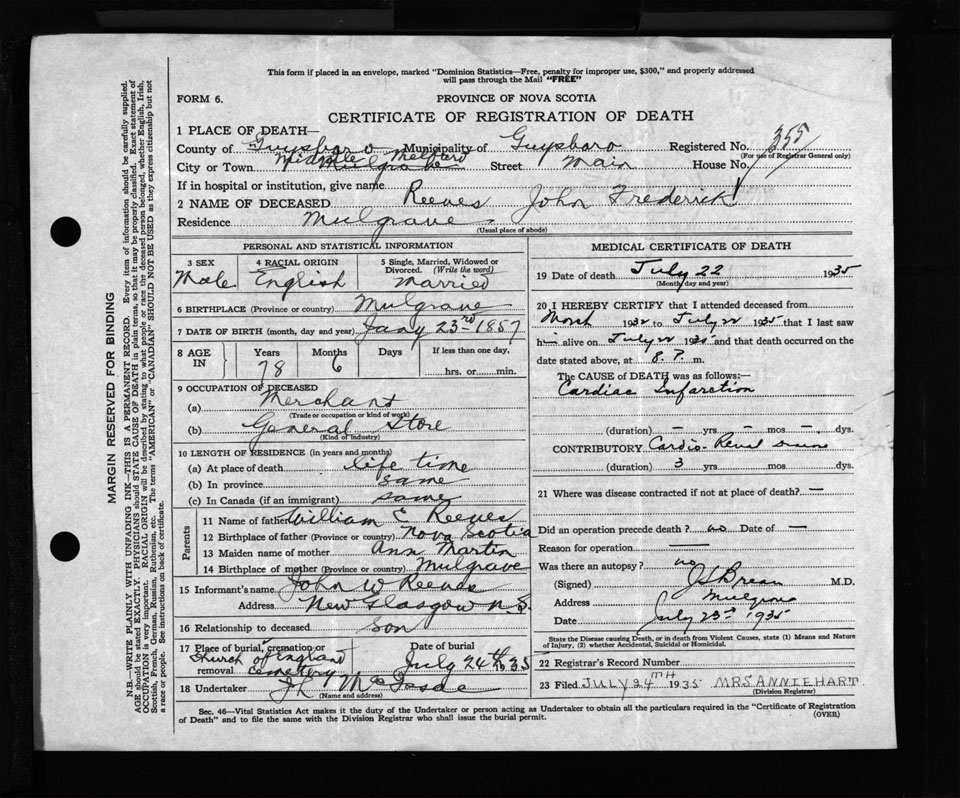 This form if placed in an envelope, marked "Dominion Statistics—Free, penalty for improper use, $300," and properly addressed
will pass through the Mail "FREE"
FORM 6.
PROVINCE OF NOVA SCOTIA
CERTIFICATE OF REGISTRATION OF DEATH
1 PLACE OF DEATH—
County of Guysboro Municipality of Guysboro Registered No. 355
(For use of Registrar General only)
City or Town Middle Melford Mulgrave Street Main House No.
If in hospital or institution, give name
2 NAME OF DECEASED Reeves John Frederick
Residence Mulgrave
(Usual place of abode)
PERSONAL AND STATISTICAL INFORMATION
3 SEX Male
4 RACIAL ORIGIN English
5 Single, Married, Widowed or Divorced. (Write the word) Married
6 BIRTHPLACE (Province or country) Mulgrave
7 DATE OF BIRTH (month, day and year) Jany 23rd 1857
8 AGE IN Years 78 Months 6 Days If less than one day, hrs. or min.
9 OCCUPATION OF DECEASED
(a) Merchant
(Trade or occupation or kind of work)
(b) General Store
(Kind of industry)
10 LENGTH OF RESIDENCE (in years and months)
(a) At place of death life time
(b) In province same
(c) In Canada (if an immigrant) same
Parents
11 Name of father William E Reeves
12 Birthplace of father (Province or country) Nova Scotia
13 Maiden name of mother Ann Martin
14 Birthplace of mother (Province or country) Mulgrave
15 Informant's name John W Reeves
Address New Glasgow N.S.
16 Relationship to deceased Son
17 Place of burial, cremation or removal Church of England Cemetery
Date of burial July 24th 35
18 Undertaker
(Name and address)
MEDICAL CERTIFICATE OF DEATH
19 Date of death July 22 1935
(Month, day and year)
20 I HEREBY CERTIFY that I attended deceased from
1932 to July 22 1935 that I last saw
him alive on July 22 and that death occurred on the
date stated above, at 8. P. m.
The CAUSE of DEATH was as follows:—
Cardiac Infarction
(duration) – yrs – mos –, dys.
CONTRIBUTORY Cardio-Renal
(duration) 3 yrs mos. dys.
21 Where was disease contracted if not at place of death? —
Did an operation precede death? no Date of —
Reason for operation —
Was there an autopsy? no
(Signed) M.D.
Address Mulgrave
Date July 23rd 1935
State the Disease causing Death, or in death from Violent Causes, state (1) Means and Nature
of Injury, (2) whether Accidental, Suicidal or Homicidal.
22 Registrar's Record Number
23 Filed JULY 24TH 1935 MRS ANNIE HART.
(Division Registrar)
Sec. 46—Vital Statistics Act makes it the duty of the Undertaker or person acting as Undertaker to obtain all the particulars required in the "Certificate of Registration
of Death" and to file the same with the Division Registrar who shall issue the burial permit.
(OVER)
MARGIN RESERVED FOR BINDING
N.B.—WRITE PLAINLY WITH UNFADING INK—THIS IS A PERMANENT RECORD. Every item of information should be carefully supplied.
AGE should be stated EXACTLY. PHYSICIANS should STATE CAUSE OF DEATH in plain terms, so that it may be properly classified. Exact statement of
OCCUPATION is very important. RACIAL ORIGIN will be described by stating to what people or race the deceased person belonged, whether English, Irish,
Scottish, French, German, Russian, Ruthenian, etc. The terms "AMERICAN" or "CANADIAN" SHOULD NOT BE USED as they express citizenship but not
a race or people. See instructions on back of certificate.